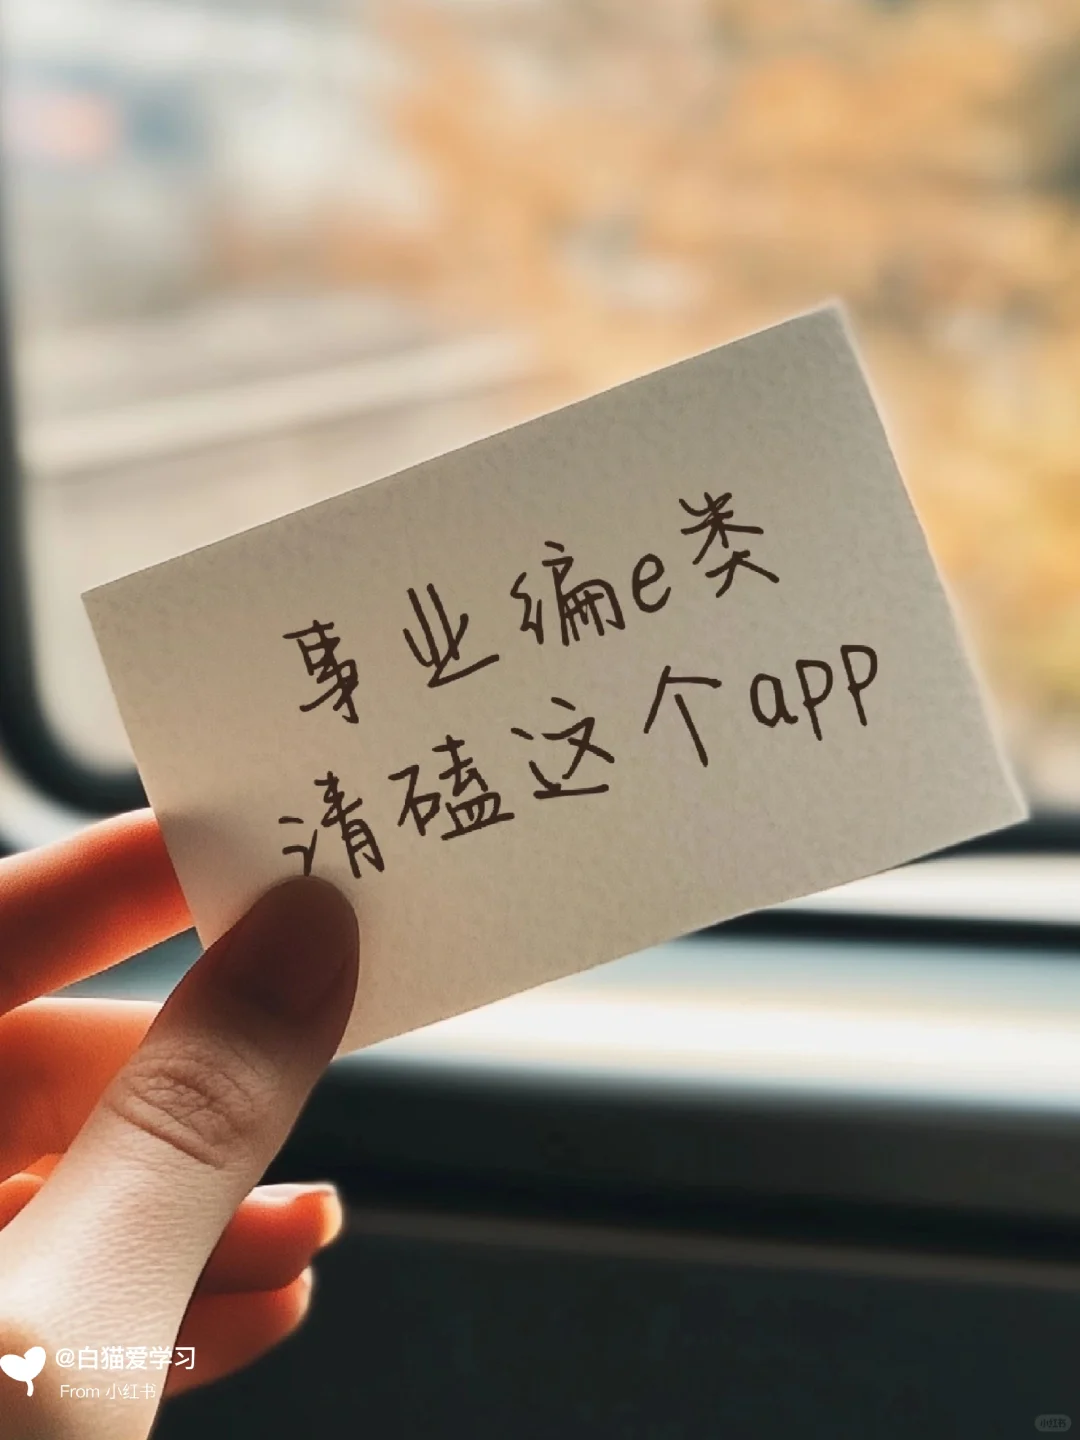 事业编e类
清磕这个app
@白猫爱学习
From 小红书
小红书